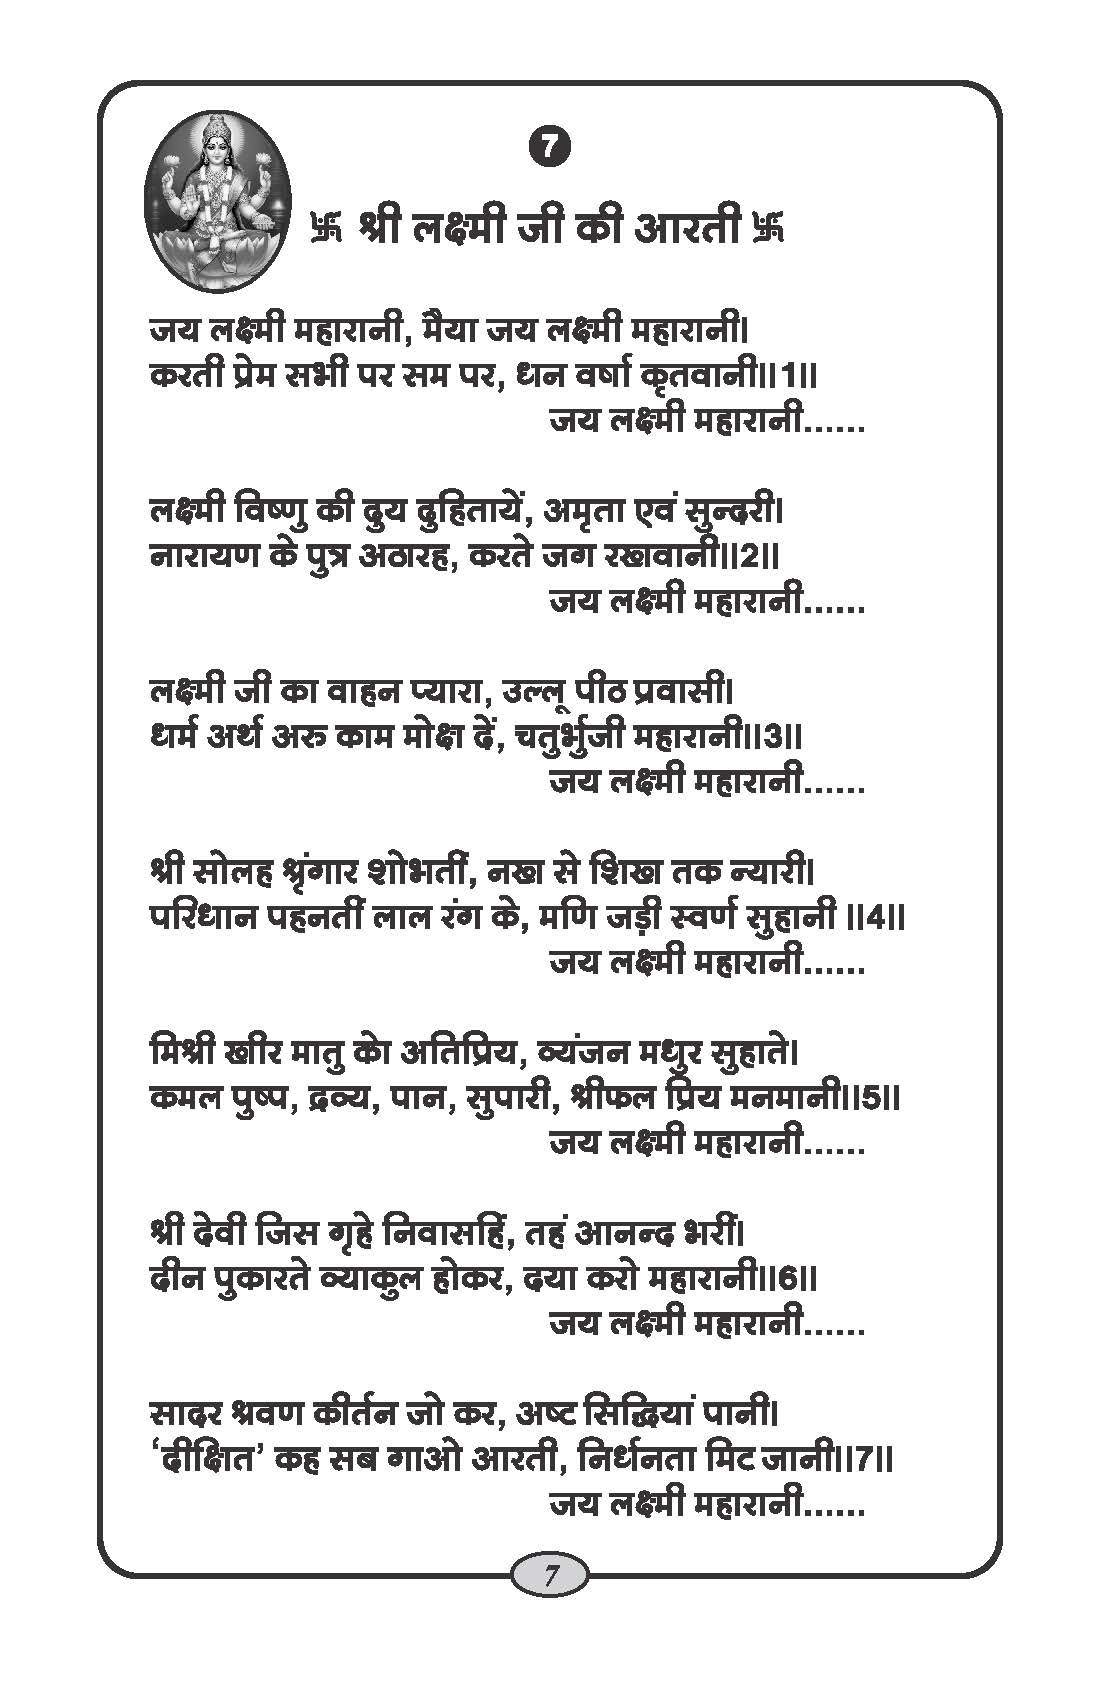 7
卐 श्री लक्ष्मी जी की आरती 卐
जय लक्ष्मी महारानी, मैया जय लक्ष्मी महारानी।
करती प्रेम सभी पर सम पर, धन वर्षा कृतवानी॥1॥
जय लक्ष्मी महारानी......
लक्ष्मी विष्णु की दुय दुहितायें, अमृता एवं सुन्दरी।
नारायण के पुत्र अठारह, करते जग रखवानी॥2॥
जय लक्ष्मी महारानी......
लक्ष्मी जी का वाहन प्यारा, उल्लू पीठ प्रवासी।
धर्म अर्थ अरु काम मोक्ष दें, चतुर्भुजी महारानी॥3॥
जय लक्ष्मी महारानी......
श्री सोलह श्रृंगार शोभतीं, नख से शिख तक न्यारी।
परिधान पहनतीं लाल रंग के, मणि जड़ी स्वर्ण सुहानी ॥4॥
जय लक्ष्मी महारानी......
मिश्री खीर मातु केा अतिप्रिय, व्यंजन मधुर सुहाते।
कमल पुष्प, द्रव्य, पान, सुपारी, श्रीफल प्रिय मनमानी॥5॥
जय लक्ष्मी महारानी......
श्री देवी जिस गृहे निवासहिं, तहं आनन्द भरीं।
दीन पुकारते व्याकुल होकर, दया करो महारानी॥6॥
जय लक्ष्मी महारानी......
सादर श्रवण कीर्तन जो कर, अष्ट सिद्धियां पानी।
‘दीक्षित’ कह सब गाओ आरती, निर्धनता मिट जानी॥7॥
जय लक्ष्मी महारानी......
7